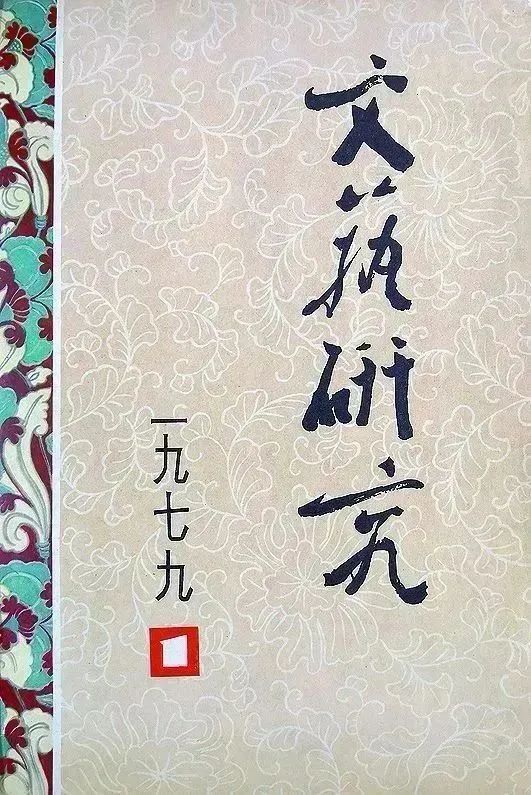 文藝研究
一九七九
1